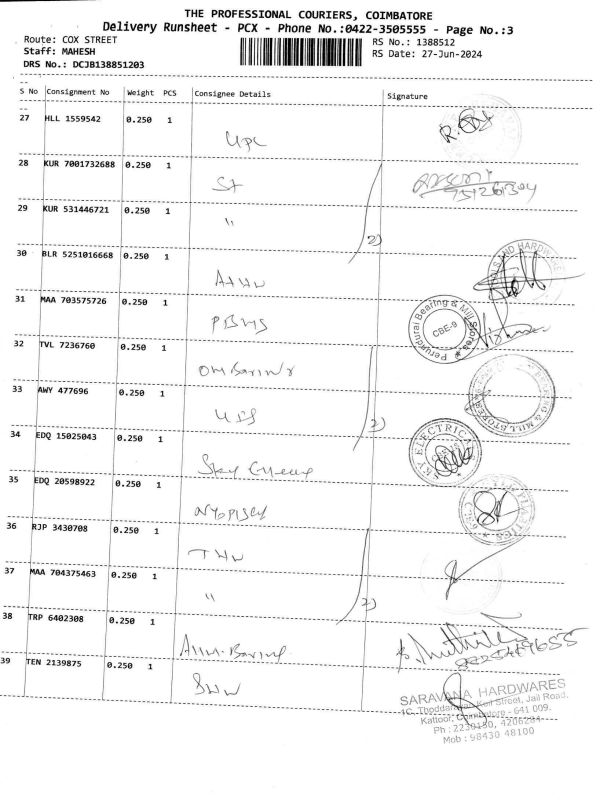 THE PROFESSIONAL COURIERS, COIMBATORE
Delivery Runsheet - PCX - Phone No.:0422-3505555 - Page No.:3
Route: COX STREET RS No.: 1388512
Staff: MAHESH RS Date: 27-Jun-2024
DRS No.: DCJB138851203
S No Consignment No Weight PCS Consignee Details Signature
27 HLL 1559542 0.250 1
UPC
28 KUR 7001732688 0.250 1
St
29 KUR 531446721 0.250 1
"
2)
30 BLR 5251016668 0.250 1
AND HARDWARE
31 MAA 703575726 0.250 1
PBMS
Perundurai Bearing & Mill Stores
CBE-9
32 TVL 7236760 0.250 1
33 AWY 477696 0.250 1
2)
& MILL STORES
34 EDQ 15025043 0.250 1
SKY ELECTRICAL
Sky
35 EDQ 20598922 0.250 1
36 RJP 3430708 0.250 1
THW
37 MAA 704375463 0.250 1
"
2)
38 TRP 6402308 0.250 1
39 TEN 2139875 0.250 1
SHW
SARAVANA HARDWARES
Street, Jail Road,
Kattoor, Coimbatore - 641 009.
Ph : 2230150, 4206284
Mob : 98430 48100